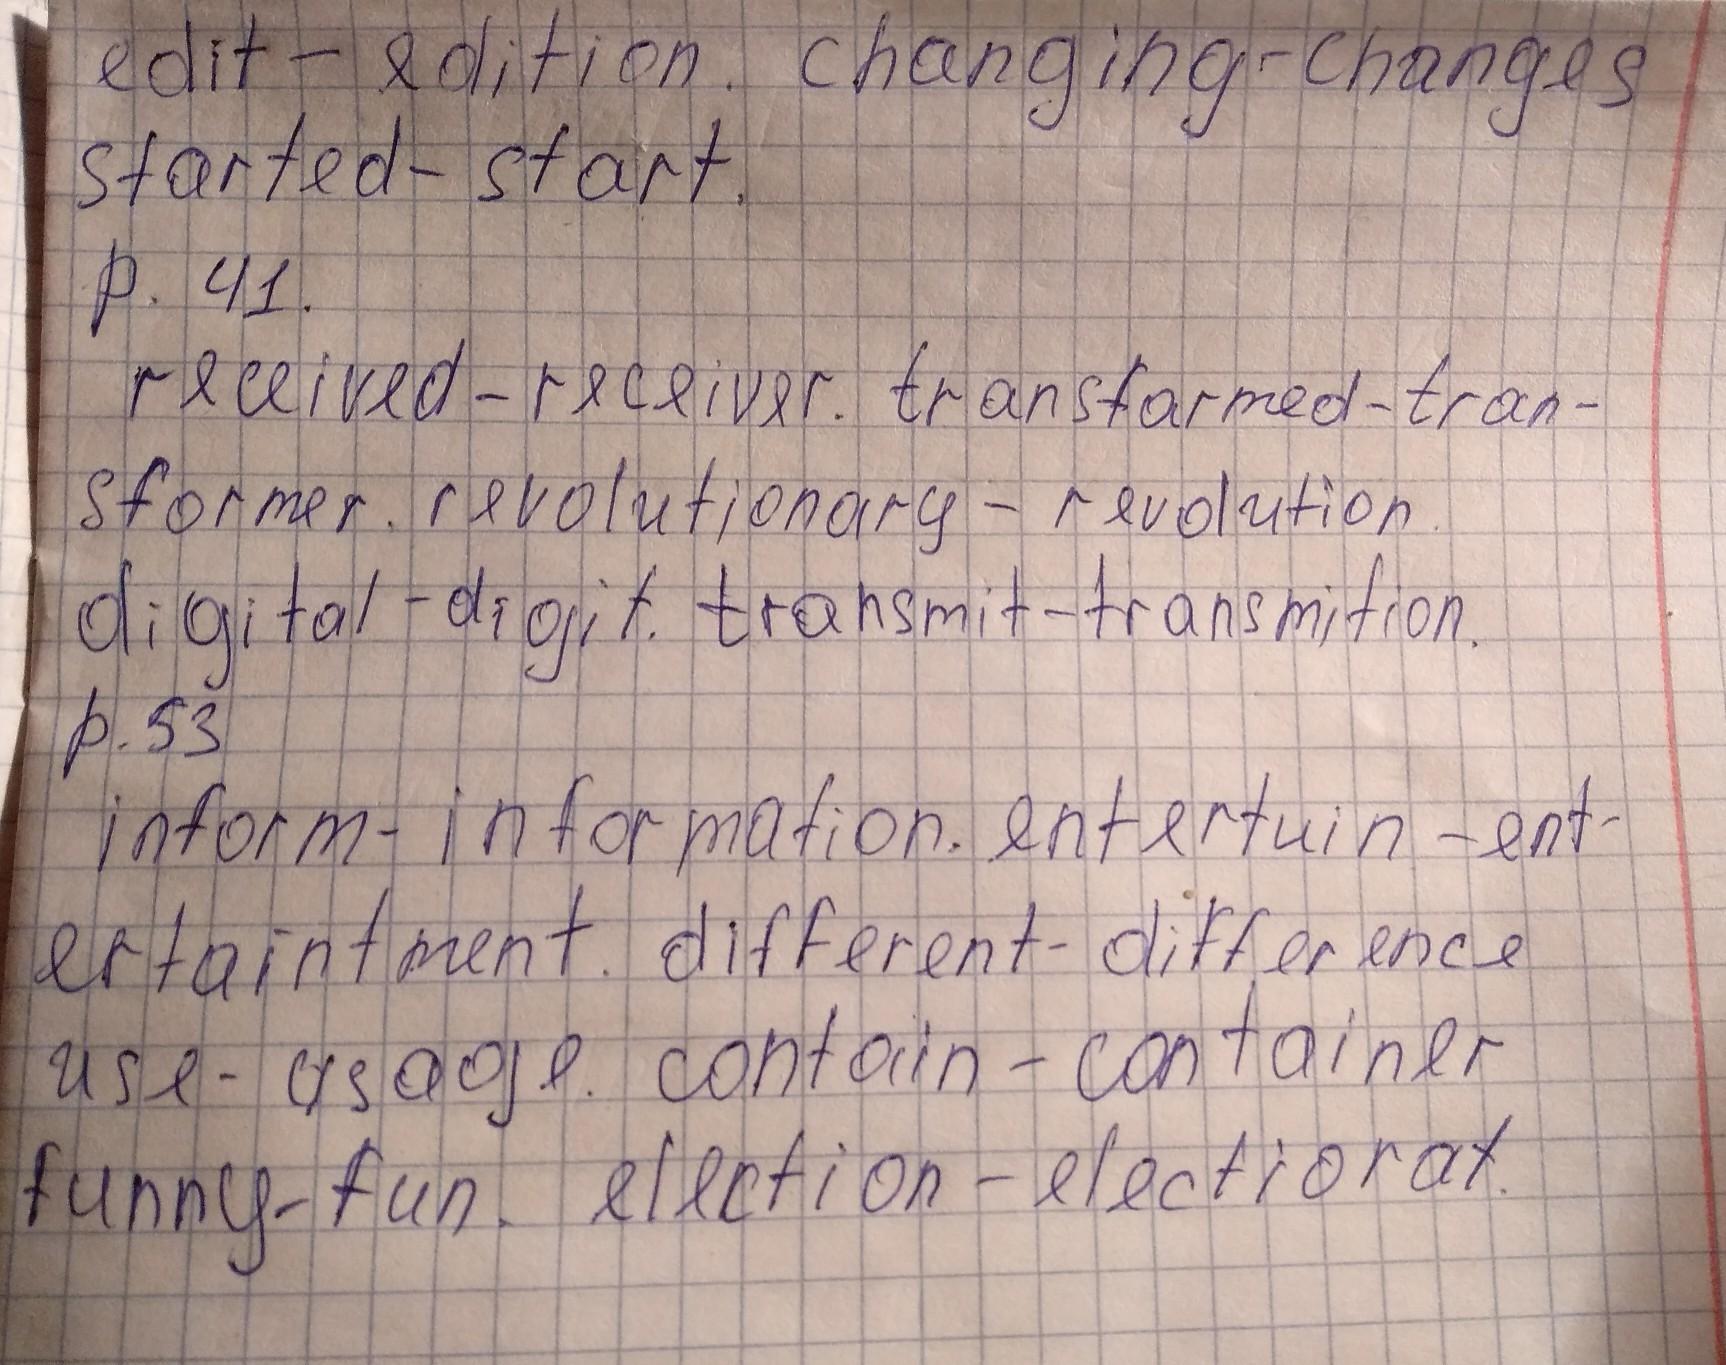 edit - edition. changing - changes
started - start.
p. 41.
received - receiver. transfarmed - tran-
sformer. revolutionary - revolution.
digital - digit. transmit - transmition.
p. 53
inform - information. entertuin - ent-
ertaintment. different - difference
use - usage. contain - container
funny - fun. election - electiorat.